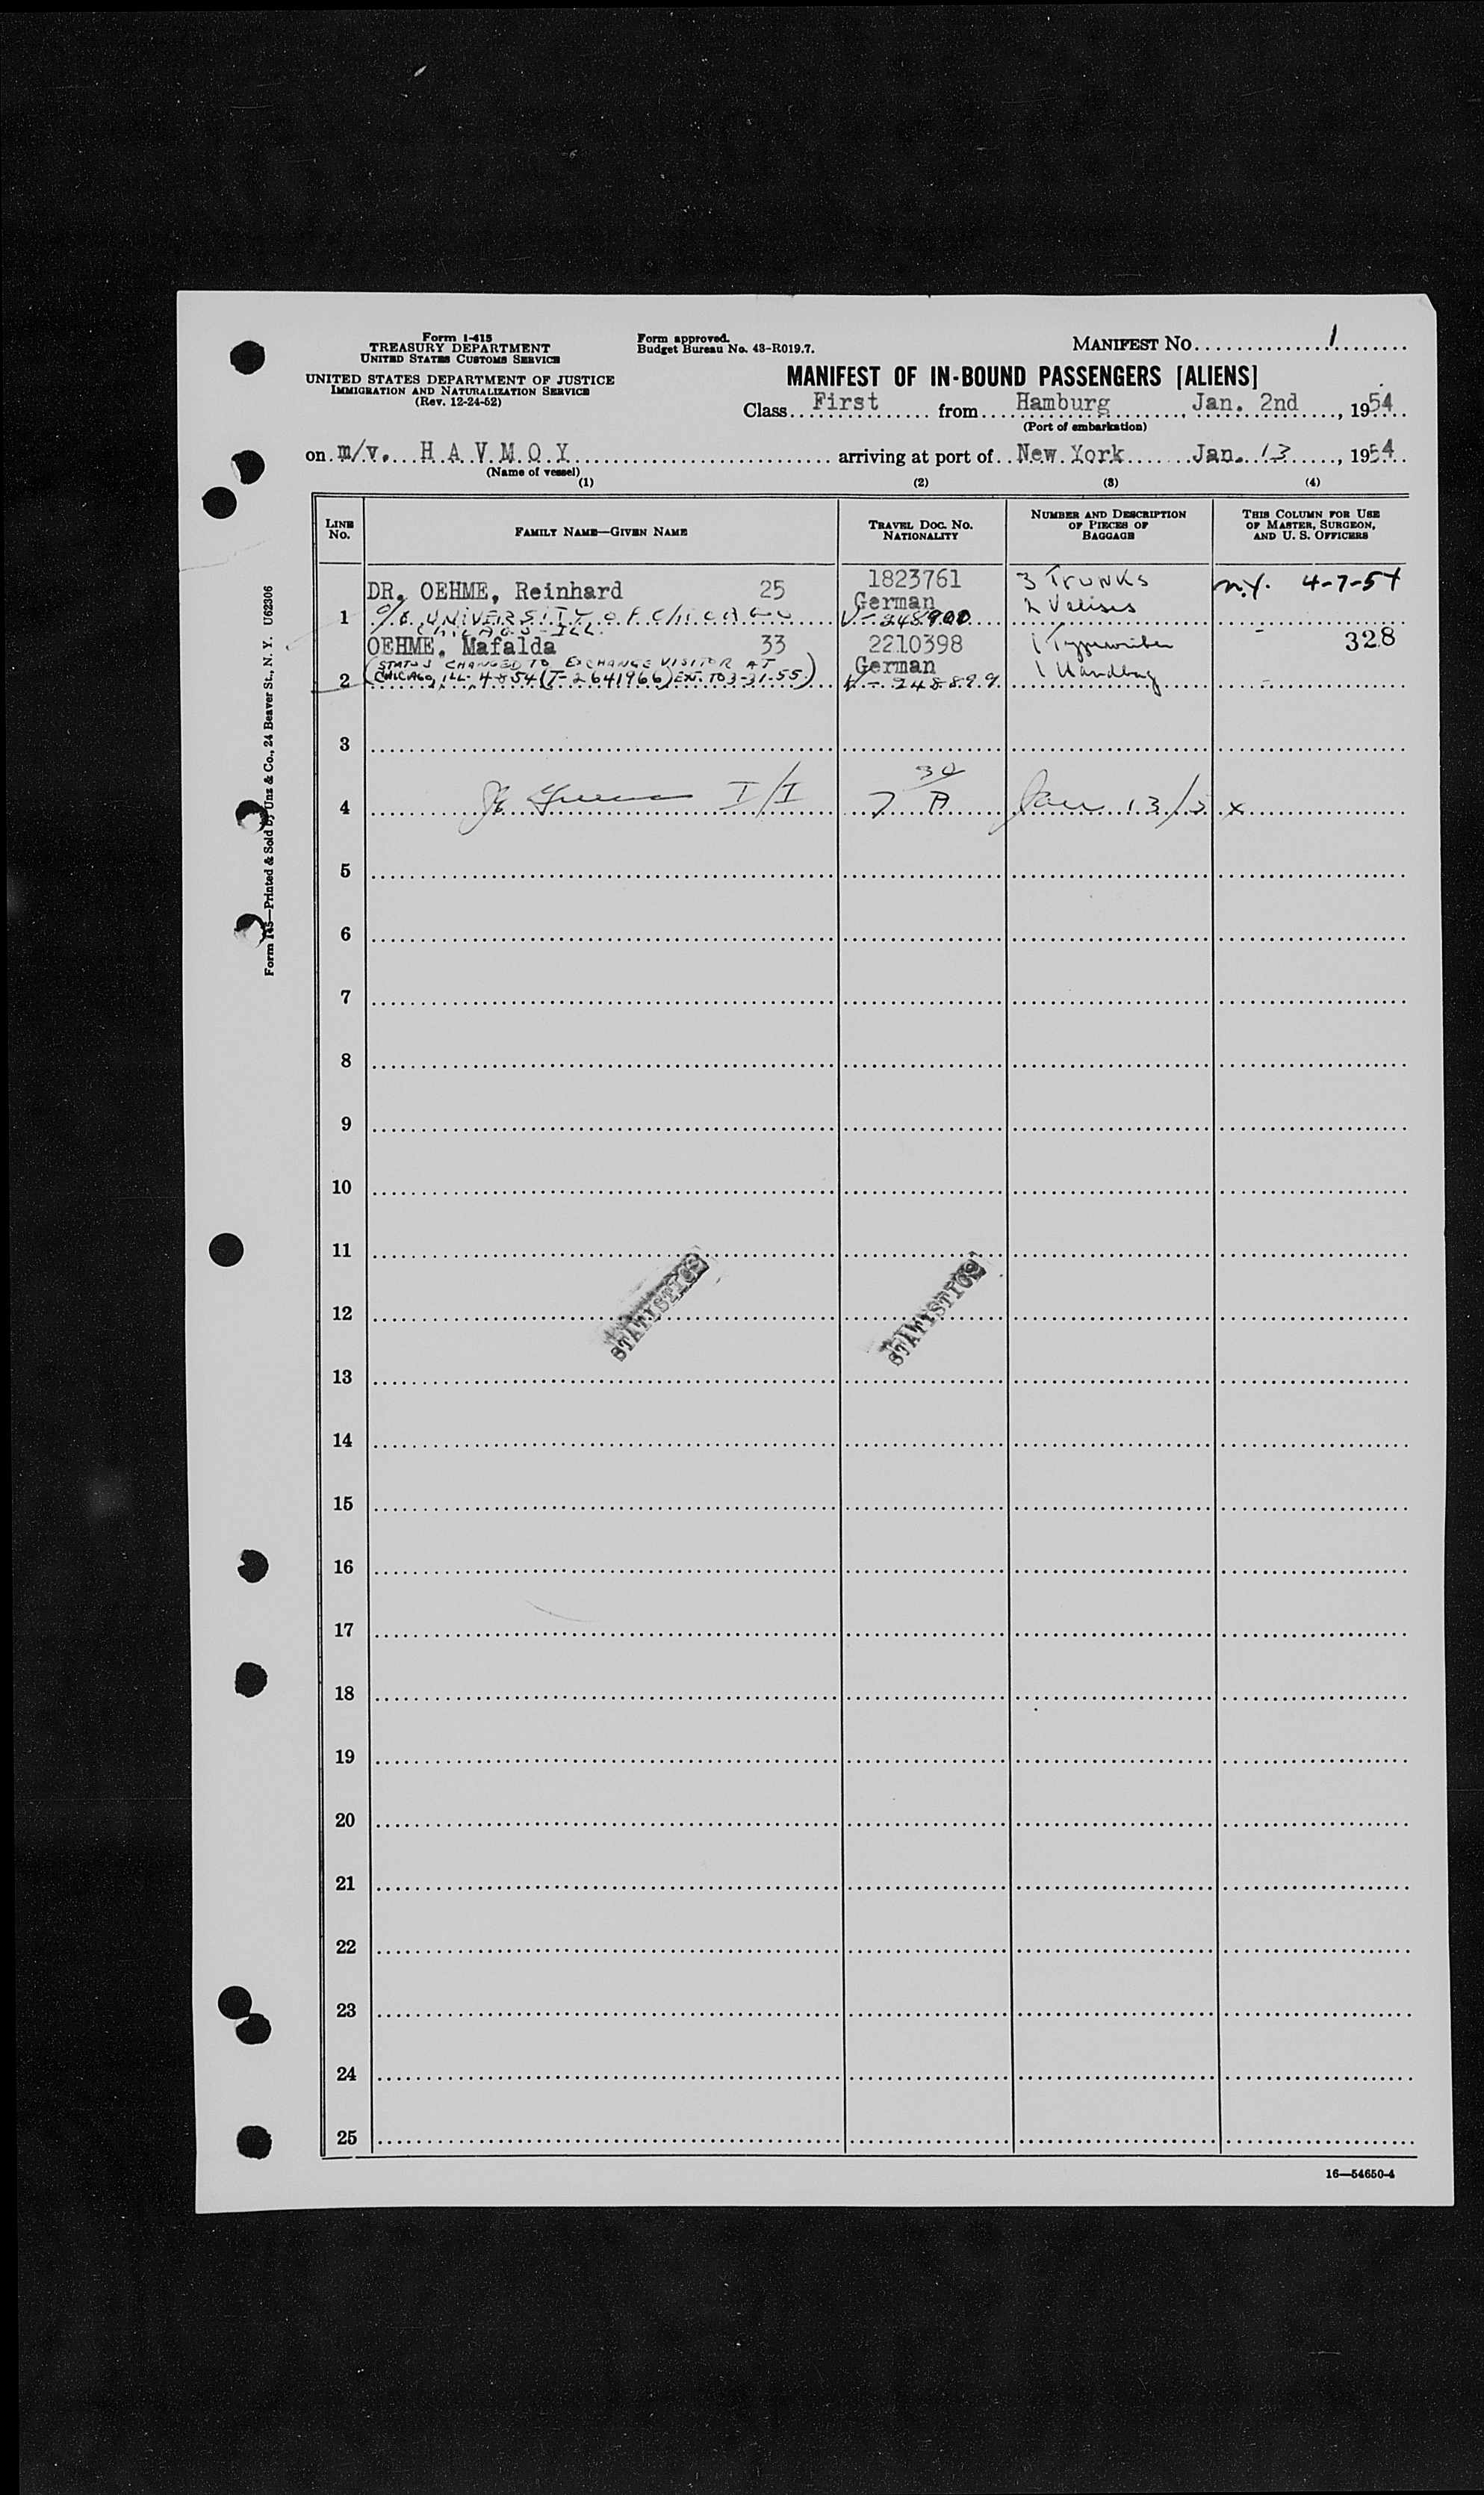 Form I-415
TREASURY DEPARTMENT
UNITED STATES CUSTOMS SERVICE
UNITED STATES DEPARTMENT OF JUSTICE
IMMIGRATION AND NATURALIZATION SERVICE
(Rev. 12-24-52)
Form approved.
Budget Bureau No. 43-R019.7.
MANIFEST NO. 1
MANIFEST OF IN-BOUND PASSENGERS [ALIENS]
Class First from Hamburg Jan. 2nd, 1954
(Port of embarkation)
on m/v. H A V M O Y arriving at port of New York Jan. 13, 1954
(Name of vessel)
(1) (2) (3) (4)
LINE No. FAMILY NAME—GIVEN NAME TRAVEL DOC. NO. NATIONALITY NUMBER AND DESCRIPTION OF PIECES OF BAGGAGE THIS COLUMN FOR USE OF MASTER, SURGEON, AND U. S. OFFICERS
DR. OEHME, Reinhard 25 1823761 3 Trunks N.Y. 4-7-54
German 2 Valises
1 c/o UNIVERSITY OF CHICAGO V-248900
CHICAGO-ILL.
OEHME, Mafalda 33 2210398 1 Typewriter 328
(STATUS CHANGED TO EXCHANGE VISITOR AT German 1 Handbag
2 CHICAGO, ILL. 4-8-54 (T-2641966) EXT. TO 3-31-55) V-248899
3
4 I/I Jan 13/
5
6
7
8
9
10
11
12
STATISTICS STATISTICS
13
14
15
16
17
18
19
20
21
22
23
24
25
16—54650-4
Form 415—Printed & Sold by Unz & Co., 24 Beaver St., N. Y. U62306